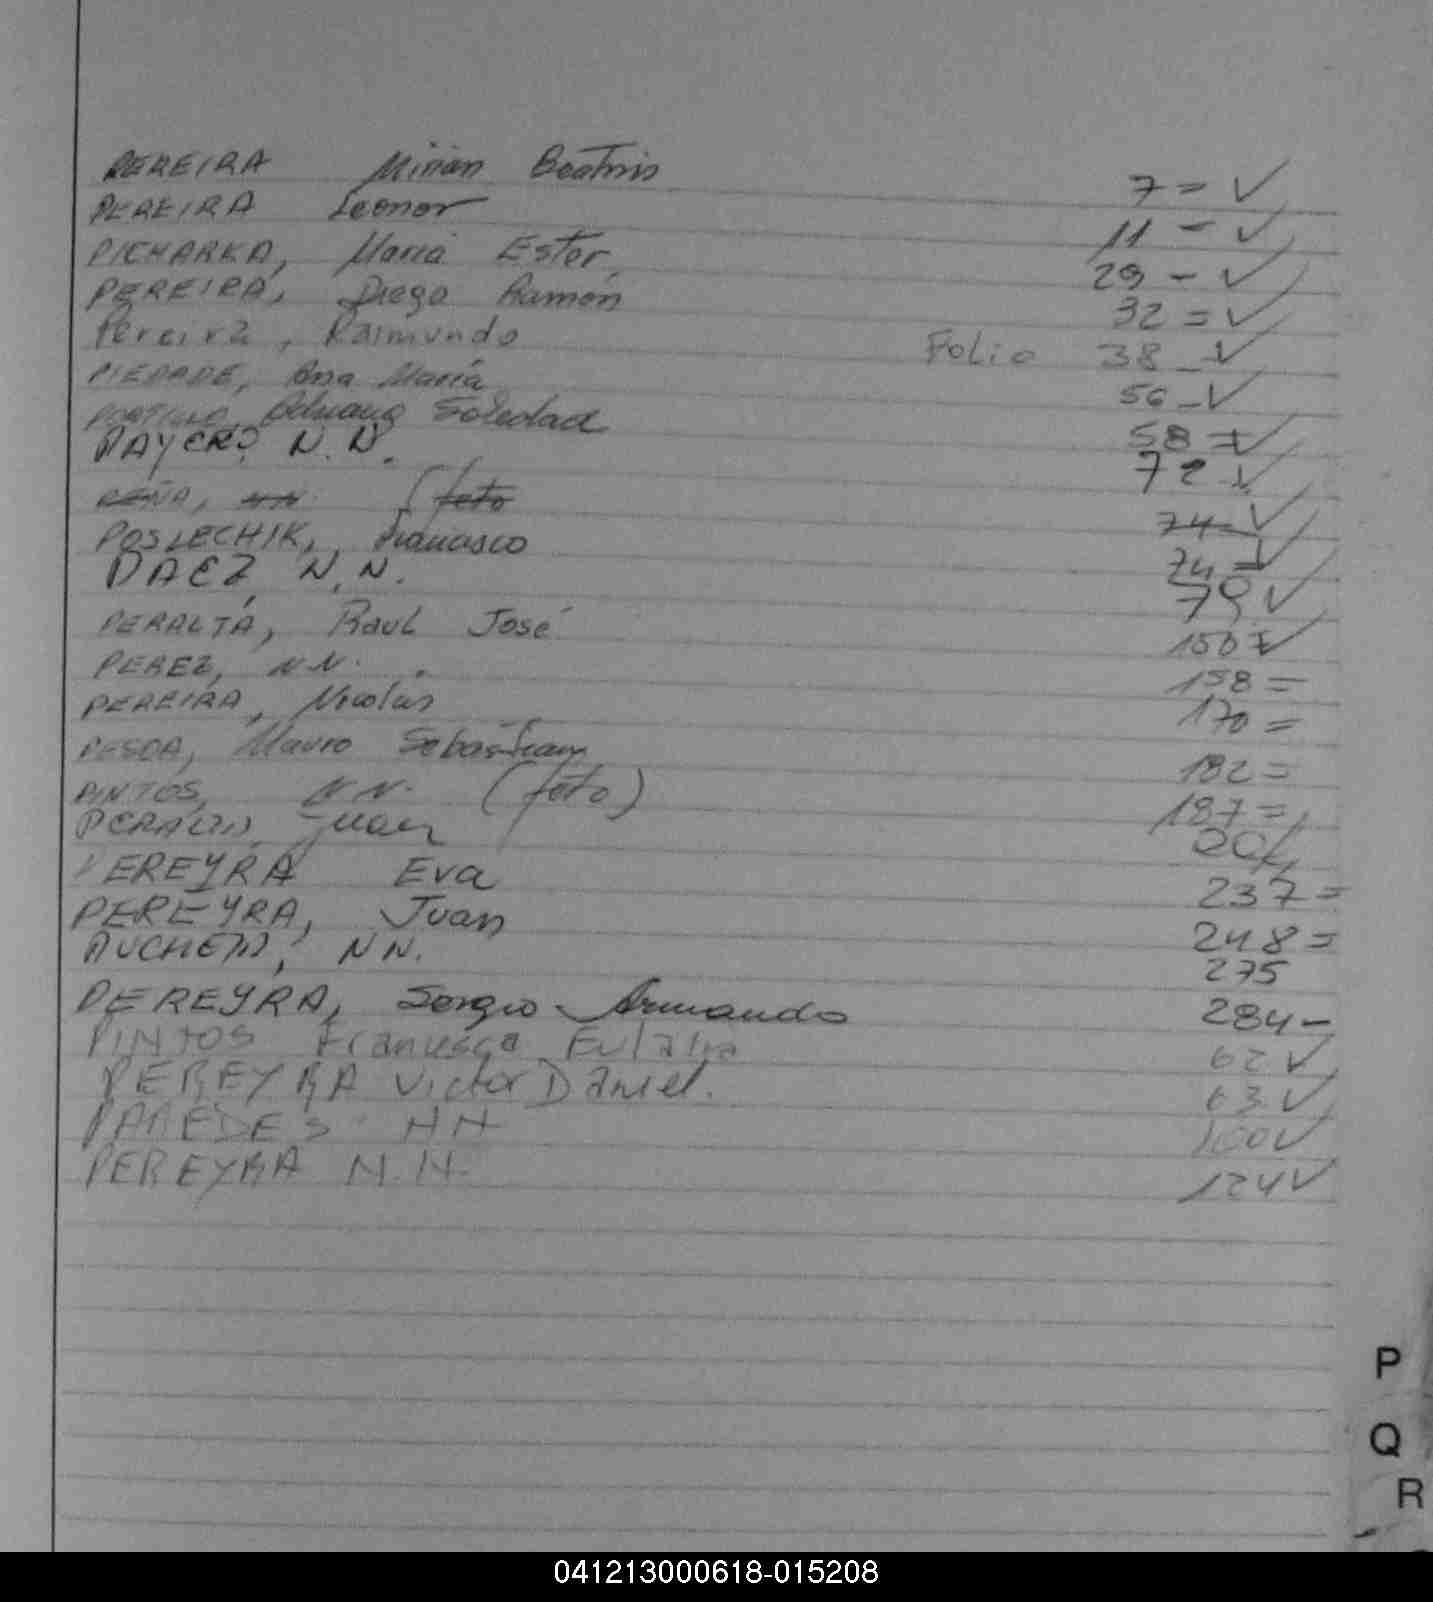 PEREIRA Mirian Beatris 7 = ✓
PEREIRA Leonor 11 - ✓
PICHARKA, Maria Ester, 29 - ✓
PEREIRA, Diego Ramón 32 = ✓
Pereira, Raimundo Folio 38 - ✓
PIEDADE, Ana María 56 - ✓
PORTILLO, Adriana Soledad 58 = ✓
PAYERO, N.N. 72 ✓
PEÑA, NN (feto 74 - ✓
POSLECHIK, Francisco 74 = ✓
PAEZ, N.N. 79 ✓
PERALTA, Raul José 150 = ✓
PEREZ, NN. 158 =
PEREIRA, Nicolas 170 =
PESOA, Mauro Sebastian 182 =
PINTOS, NN. (feto) 187 =
Juan 204
PEREYRA Eva 237 =
PEREYRA, Juan 248 =
NN. 275
PEREYRA, Sergio Armando 284 -
PINTOS Francisca Eulalia 62 ✓
PEREYRA Victor Daniel. 63 ✓
PAREDES NN 100 ✓
PEREYRA N.N. 124 ✓
P
Q
R
041213000618-015208